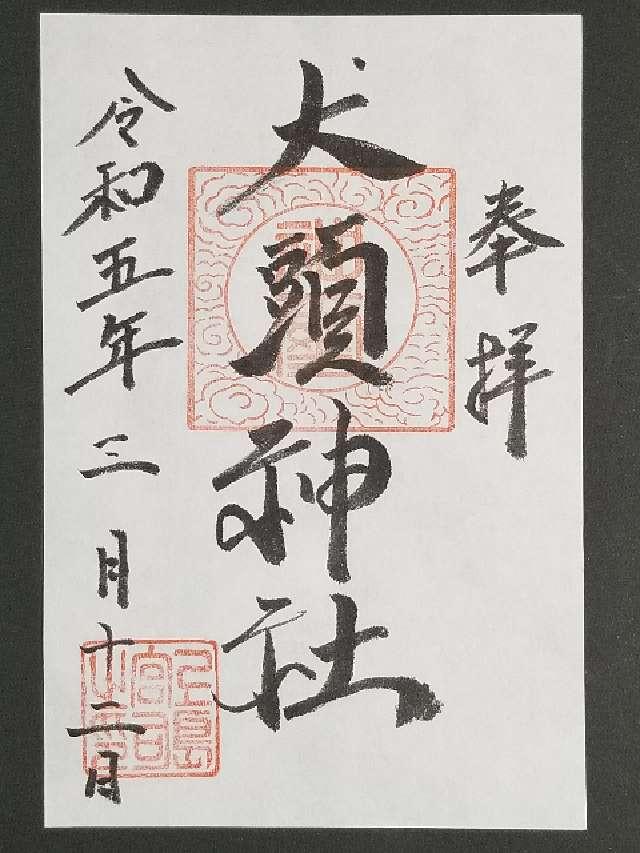 奉拝
犬頭神社
令和五年三月十二日